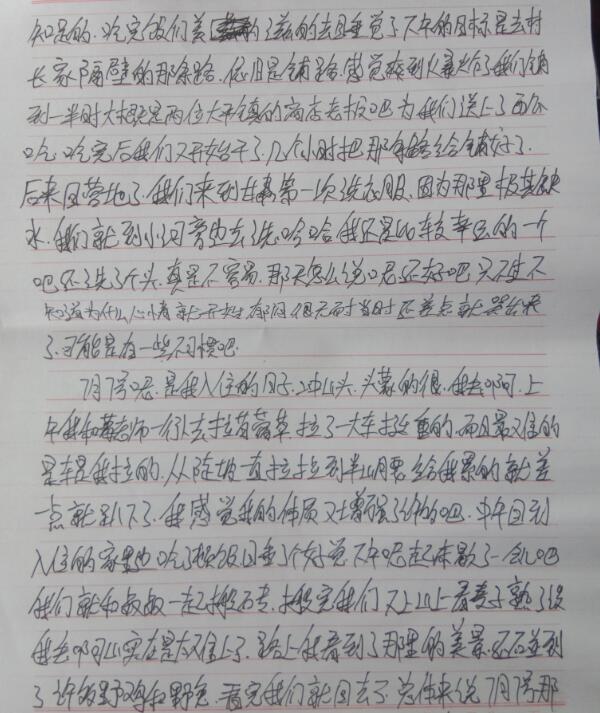 知是的. 吃完饭们美的滋的去回睡觉了下午的目标是去村
长家隔壁的那条路. 依旧是铺路. 感觉爽到火暴哈了我们铺
到一半时大概是两位太平镇的商店老板吧为我们送上了西瓜
吃. 吃完后我们又开始干了. 几个小时把那条路给铺好了.
后来回营地了. 我们来到甘肃第一次洗衣服. 因为那里极其缺
水. 我们就到小河旁边去洗. 哈哈我还是比较幸运的一个
吧还洗了个头. 真是不容易. 那天怎么说呢还好吧只不过不
知道为什么心情就一开始有点很无而当时还差点就哭出来
了. 可能是有一些不习惯吧.
7月7号呢. 是我入住的日子. 上山头. 头蒙的很. 我去啊呵. 上
午我和老师一行去拉苜蓿草. 拉了一大车挺重的. 而且最难的
是车是我拉的. 从陡坡一直拉拉到半山腰. 给我累的就差
一点就趴下了. 我感觉我的体质又增强了许多吧. 中午回到
入住的家里边吃了顿饭回睡了个好觉. 下午呢起床歇了一会儿吧
我们就和叔叔一起搬石砖. 搬完我们又上山上看麦子熟了没
我去啊呵山实在是太难上了. 路上我看到了那里的美景. 还碰到
了许多野鸡和野兔. 看完我们就回去了. 总体来说7月7号那